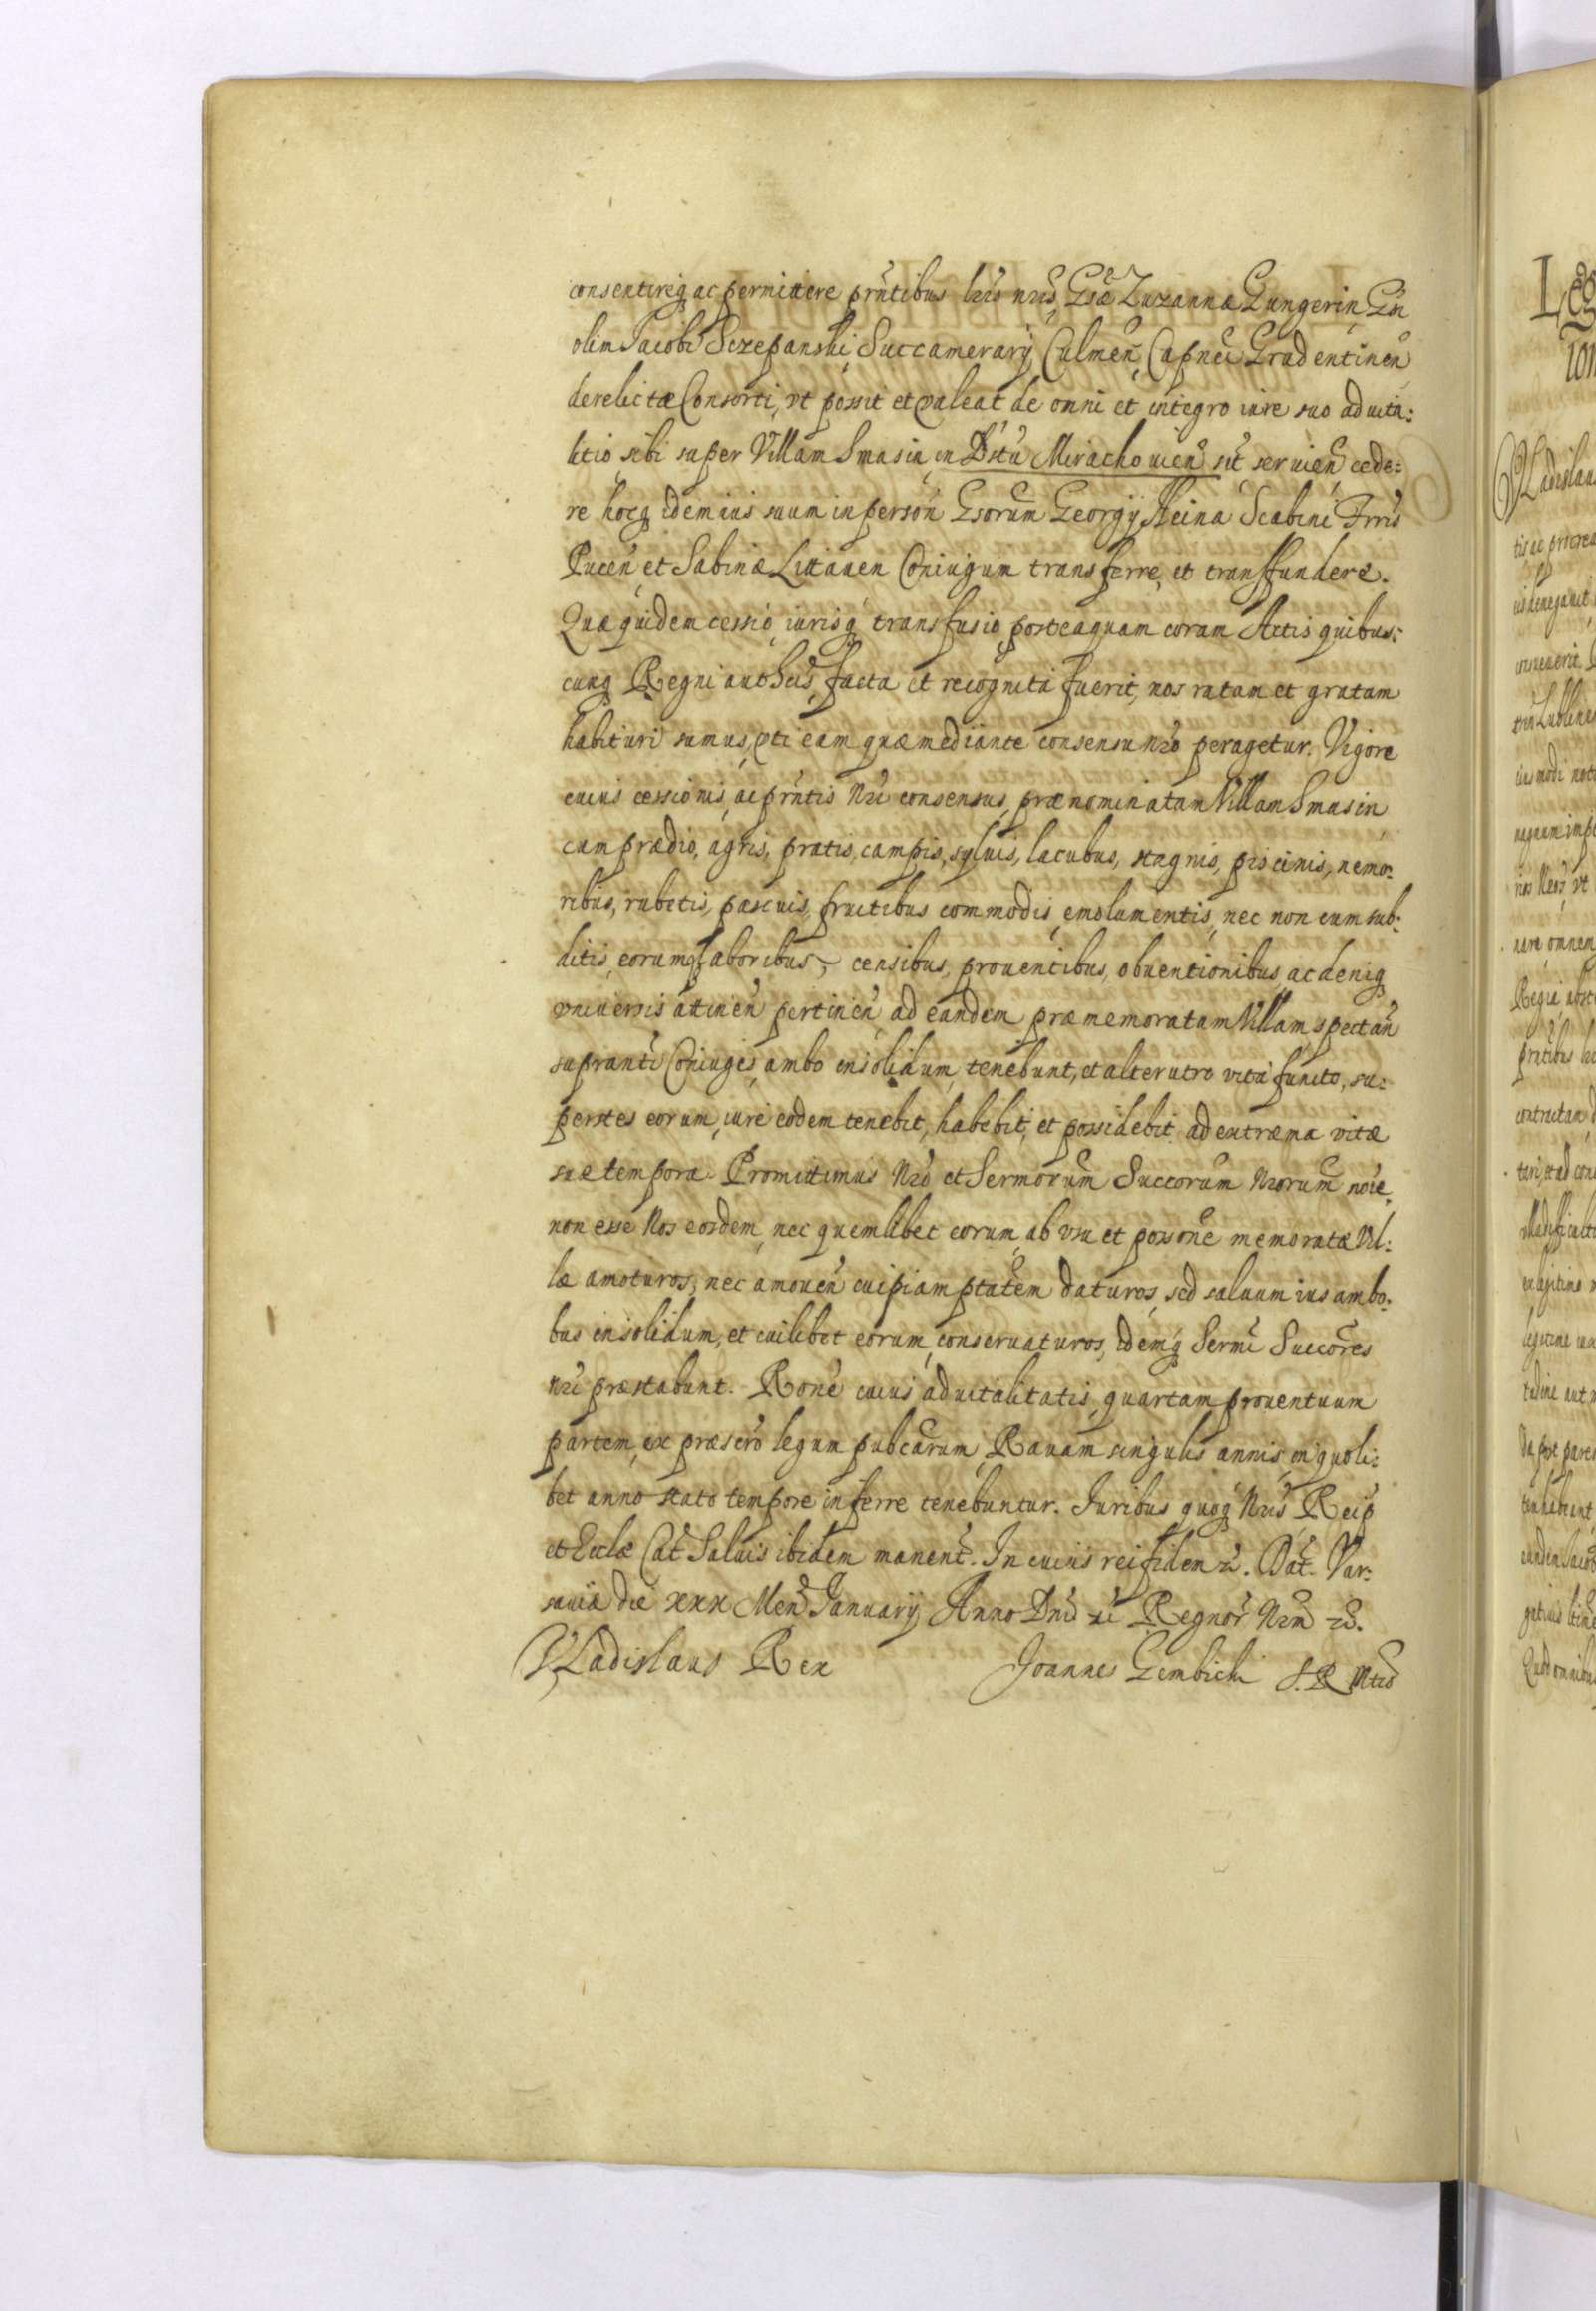 consentireq́ ac permittere prn̄tibus lr̄is nr̄is, Gsæ Zuzannæ Gungerin Gsi
olim Jacobi Sczepanski Succamerarÿ Culmen̄, Capnei Grudentinen̄
derelictæ Consorti, vt possit et valeat de omni et integro iure suo aduita:
litio sibi super Villam Smasin in Dístu Mirachouien̄ sit̄ seruien̄ cede:
re hocq́ idem ius suum in person̄ Gsorum Georgÿ Heina Scabini Trris
Pucen̄ et Sabinæ Littauen Coniugum transferre et transffundere.
Quæ quidem cessio, iurisq́ transfusio posteaquam coram Actis quibus:
cunq́ Regni autĥcis, facta et recognita fuerit, nos ratam et gratam
habituri sumus, vti eam quæ mediante consensu nr̄o peragetur. Vigore
cuius cessionis, ac prn̄tis Nr̄i consensus, prænominatam Villam Smasin
cum prædio, agris, pratis, campis, syluis, lacubus, stagnis, piscinis, nemo:
ribus, rubetis, pascuis, fructibus commodis, emolumentis, nec non cum sub:
ditis, eorumq́ laboribus, censibus, prouentibus, obuentionibus, ac deniq́
vniuersis attinen̄ pertinen̄ ad eandem præmemoratam Villam spectan̄
supranti Coniuges, ambo insolidum, tenebunt, et alterutro vita functo, su:
perstes eorum, iure eodem tenebit, habebit, et possidebit ad extræma vitæ
suæ tempora. Promittimus Nr̄o et Sermorum Succorum Nrorum noīe,
non esse Nos eosdem, nec quemlibet eorum, ab vsu et possone memoratæ Vil:
læ amoturos, nec amouen̄ cuipiam ptatem daturos, sed saluum ius ambo:
bus insolidum, et cuilibet eorum, conseruaturos, idemq́ Sermi Succores
Nr̄i præstabunt. Rone cuius aduitalitatis, quartam prouentuum
partem, ex præscro legum pubcarum, Rauam singulis annis, in quoli:
bet anno stato tempore inferre tenebuntur. Juribus quoq́ Nr̄is Reip
et Eccłæ Cat̄ Saluis ibidem manent̄. In cuius rei fidem &c. Dat̄. Var:
sauiæ die xxx Men̄ Januarÿ Anno Dni ut Regnor̄ Nrm &c.
VLadislaus Rex Joannes Gembicki S. R. Mtis